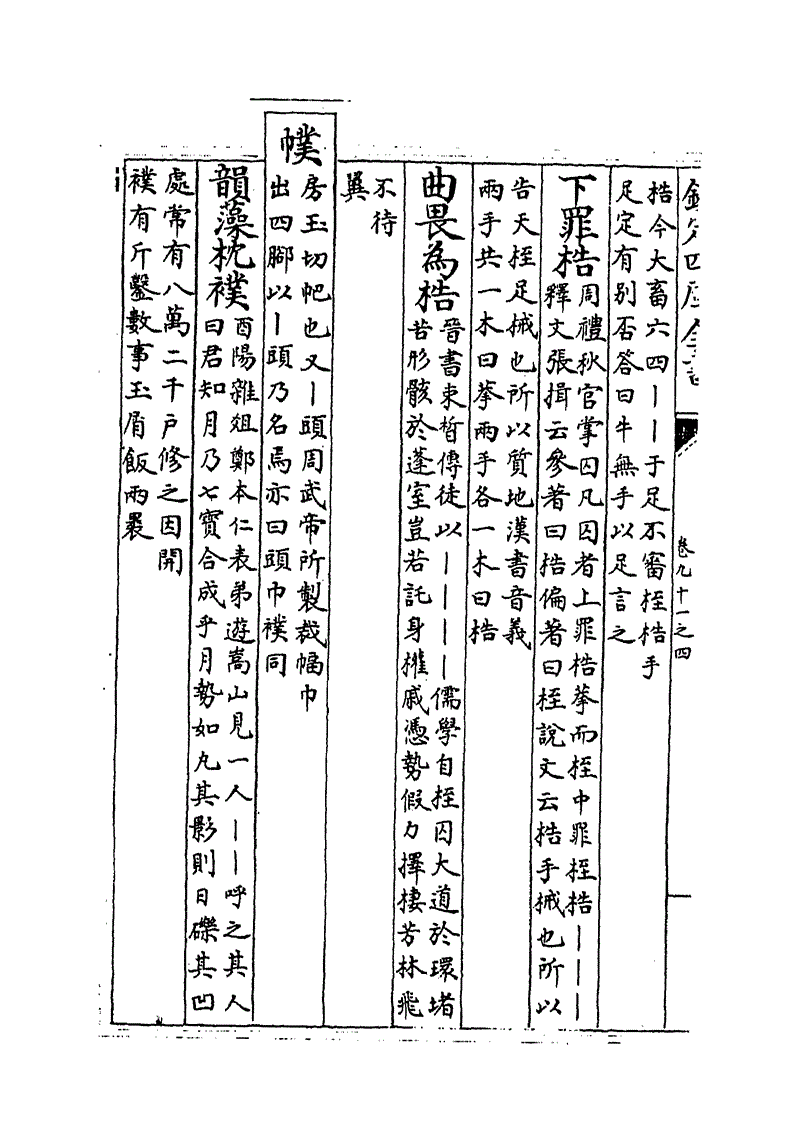 欽定四庫全書
卷九十一之四
梏今大畜六四〡〡于足不審桎梏手
足定有别否答曰牛無手以足言之
下罪梏
周禮秋官掌囚凡囚者上罪梏拲而桎中罪桎梏〡〡〡
釋文張揖云參著曰梏偏著曰桎說文云梏手械也所以
告天桎足械也所以質地漢書音義
兩手共一木曰拲兩手各一木曰梏
曲畏為梏
晉書束晳傳徒以〡〡〡〡儒學自桎囚大道於環堵
苦形骸於蓬室豈若託身權戚憑勢假力擇棲芳林飛
不待
翼
幞
房玉切帊也又〡頭周武帝所製裁幅巾
出四腳以〡頭乃名焉亦曰頭巾襆同
韻藻枕襆
酉陽雜俎鄭本仁表弟遊嵩山見一人〡〡呼之其人
曰君知月乃七寶合成乎月勢如丸其影則日礫其凹
處常有八萬二千戸修之因開
襆有斤鑿數事玉屑飯兩裹